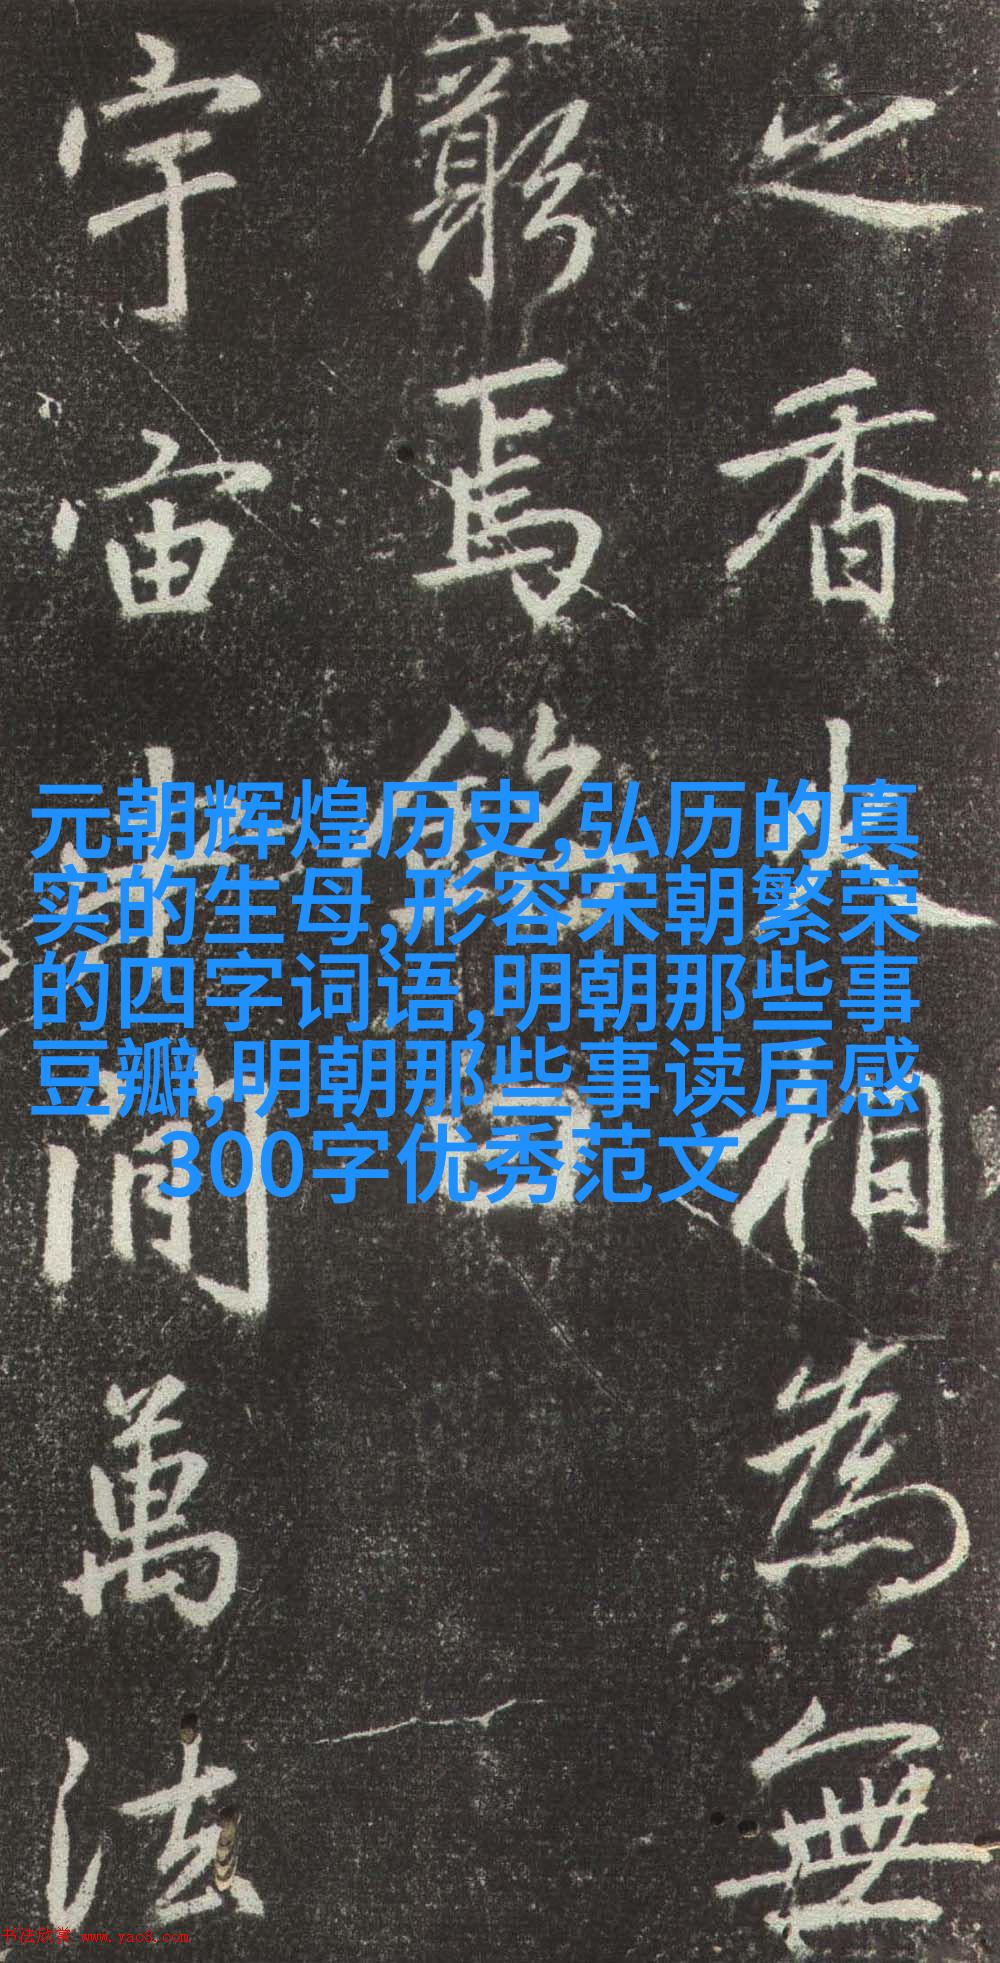 之香火相為無
窮焉銘曰
宇宙間萬法
元朝辉煌历史,弘历的真
实的生母,形容宋朝繁荣
的四字词语,明朝那些事
豆瓣,明朝那些事读后感
300字优秀范文
书法欣赏 www.yac8.com